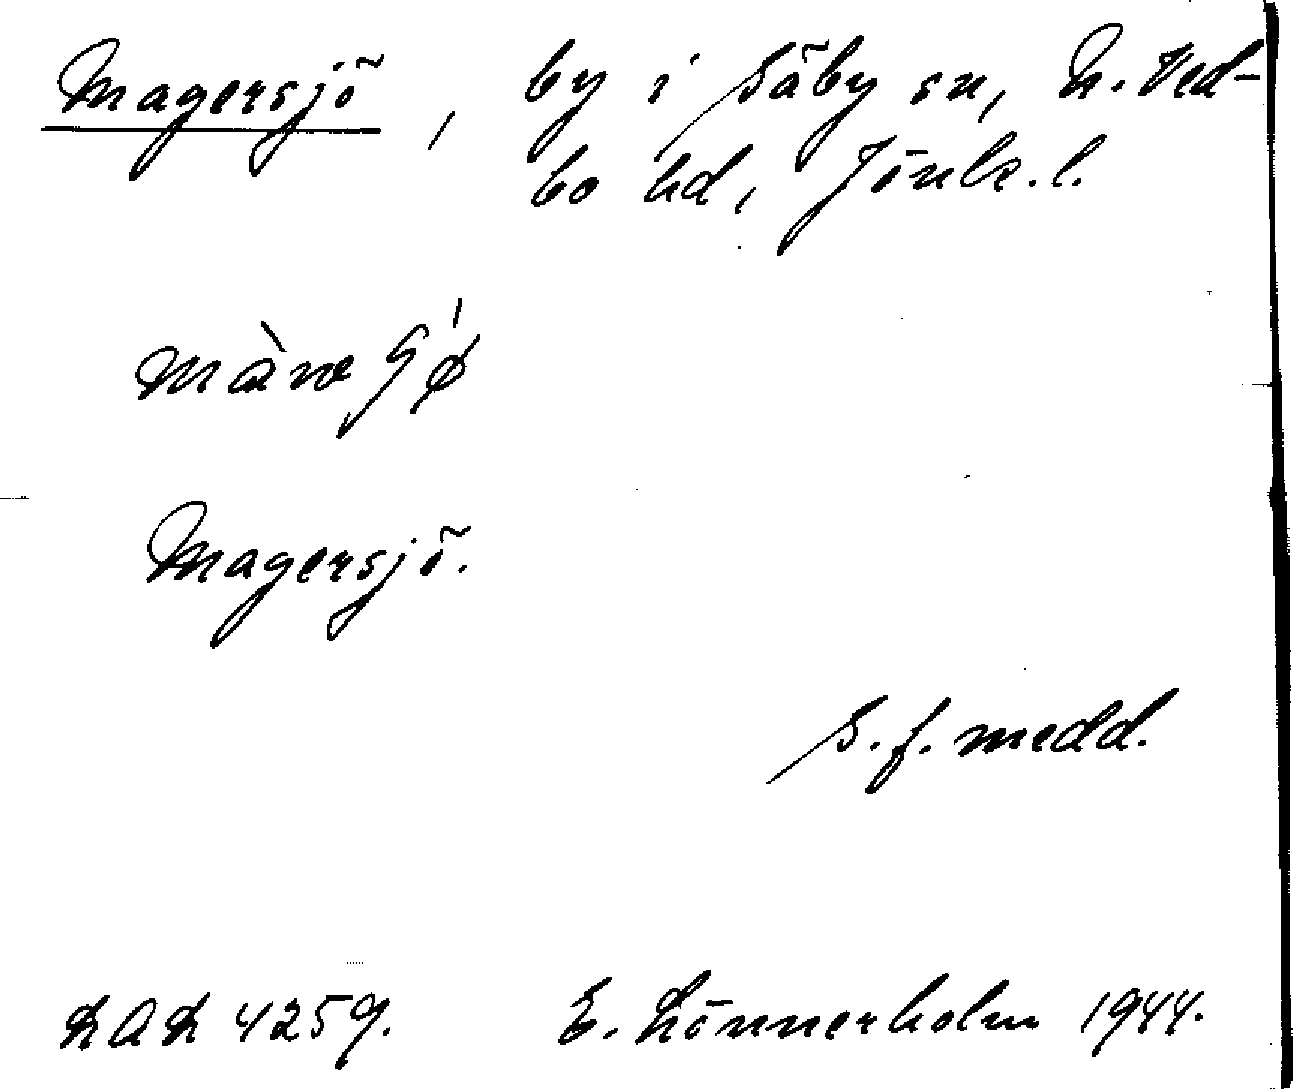 Magersjö, by i Säby sn, N. Ved-
bo hd, Jönk. l.
Magersjö.
S. f. medd.
E. Lönnerholm 1944.